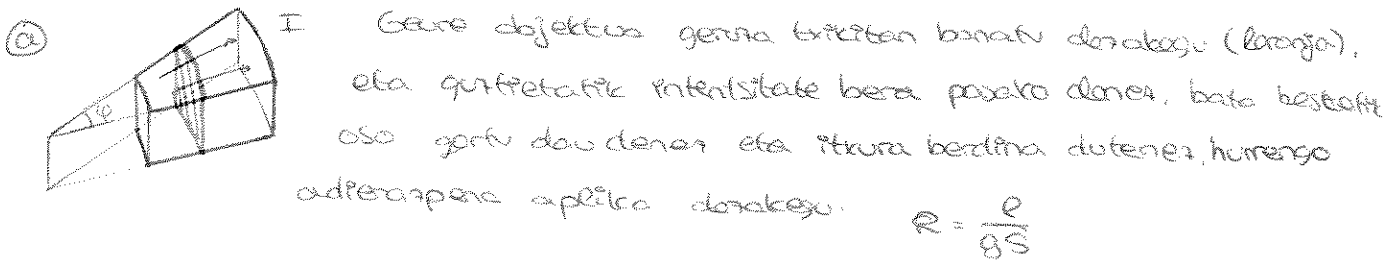 a I Geure objektua gerra txikitan banatu dezakegu (laranja),
φ
eta guztietatik intentsitate bera pasako denez, bata bestetik
oso gertu daudenez eta itxura berdina dutenez, hurrengo
adierazpena aplika dezakegu. R = ℓ / gS